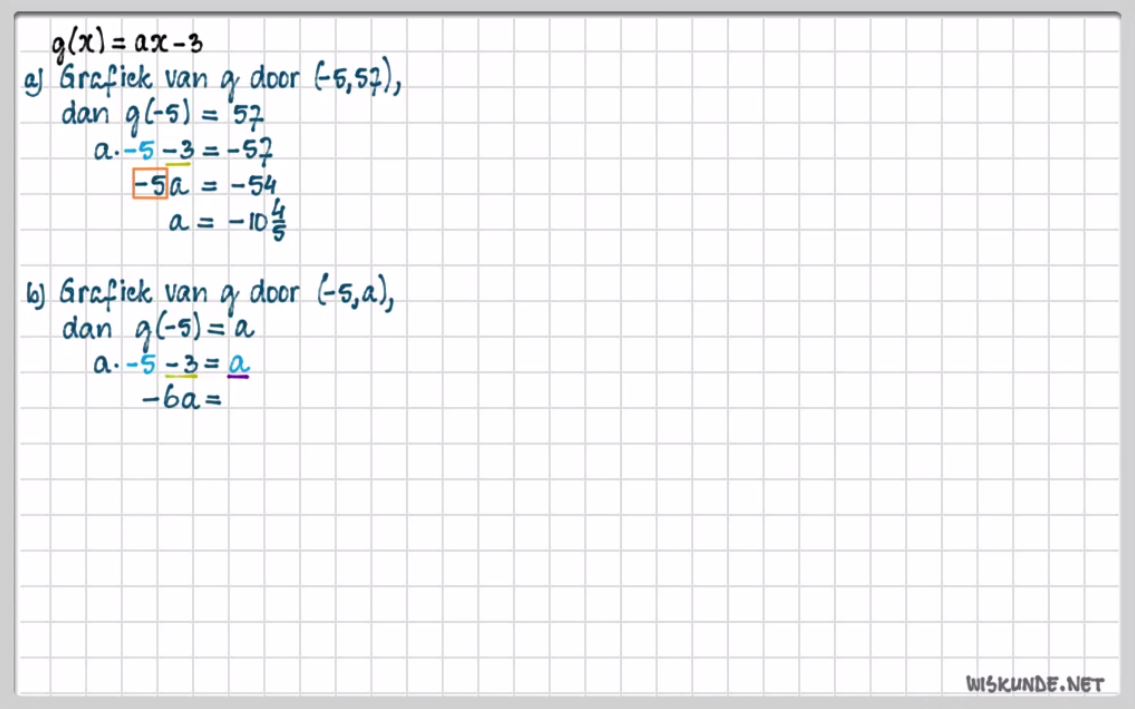 g(x) = ax - 3
a) Grafiek van g door (-5,57),
dan g(-5) = 57
a·-5 -3 = -57
-5a = -54
a = -10 4/5
b) Grafiek van g door (-5,a),
dan g(-5) = a
a·-5 -3 = a
-6a =
WISKUNDE.NET